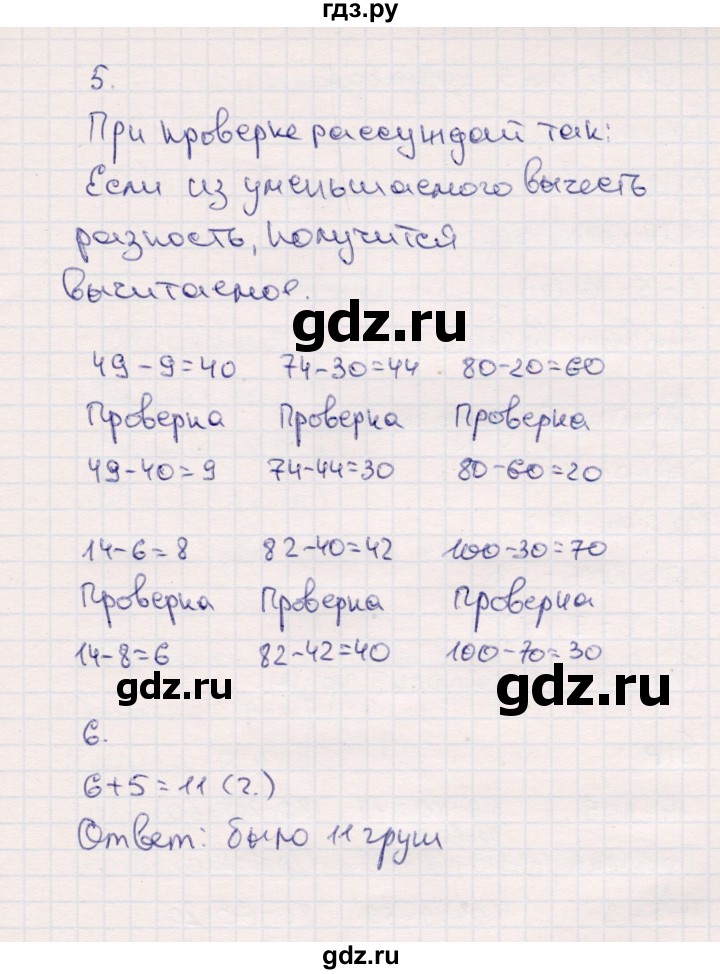 гдз.ру
5.
При проверке рассуждай так:
Если из уменьшаемого вычесть
разность, получится
вычитаемое.
gdz.ru
49-9=40 74-30=44 80-20=60
Проверка Проверка Проверка
49-40=9 74-44=30 80-60=20
14-6=8 82-40=42 100-30=70
Проверка Проверка Проверка
14-8=6 82-42=40 100-70=30
gdz.ru gdz.ru
6.
6+5=11 (г.)
Ответ: было 11 груш
gdz.ru